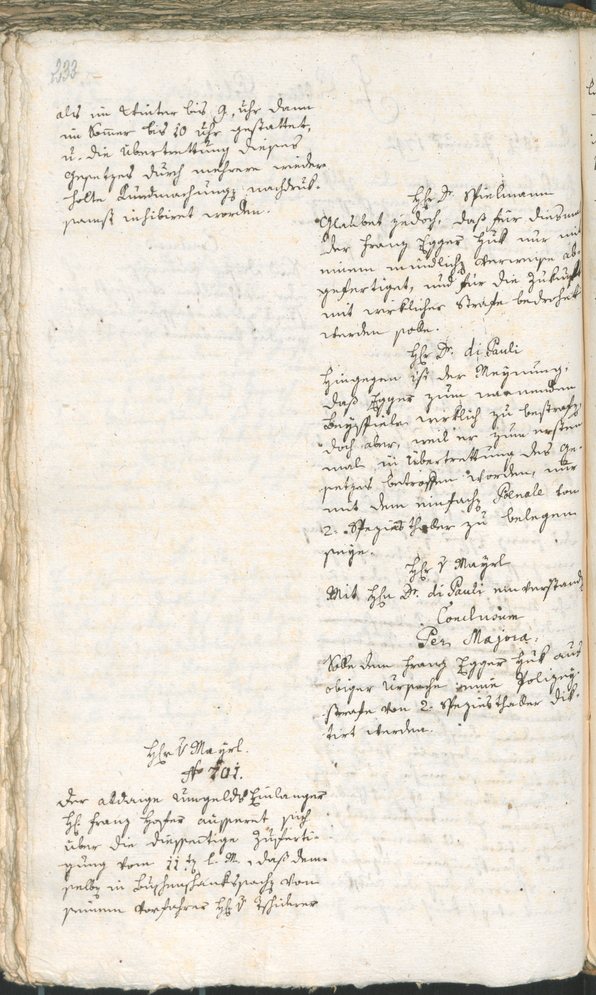 233
als im Winter bis 9, uhr dann
im Somer bis 10 uhr gestattet,
u. die übertrettung dieses
Gesetzes durch mehrere wieder
holte Kundmachung nachdrük-
samst inhibiret worden.
Hr Dr. Spielmann
Glaubet jedoch, daß für diesma
der Franz Egger Huk nur mit
einem mündlich Verweise ab-
gefertiget, und für die Zukunft
mit wirklicher Strafe bedrohet
werden solle.
Hr Dr. di Pauli
Hingegen ist der Meynung,
daß Egger zum warnenden
Beyspiele wirklich zu bestrafen
doch aber, weil er zum ersten
mal in übertrettung des Ge-
setzes betroffen worden, nur
mit dem einfach Poenale von
2. Speziesthaler zu belegen
seye.
Hr V Mayrl
Mit Hn Dr. di Pauli einverstand
Conclusum
Per Majora.
Solle dem Franz Egger Huk aus
obiger Ursache eine Polizey-
strafe von 2. Speziesthaler dik-
tirt werden.
Hr V Mayrl.
No 701.
Der aldaige Umgelds Einlanger
H. Franz Hofer äusseret sich
über die diesseitige Zuferti-
gung vom 11 l. M., daß dem-
selb in Buschenschanksach von
seinem Vorfahrer H V Tschiderer